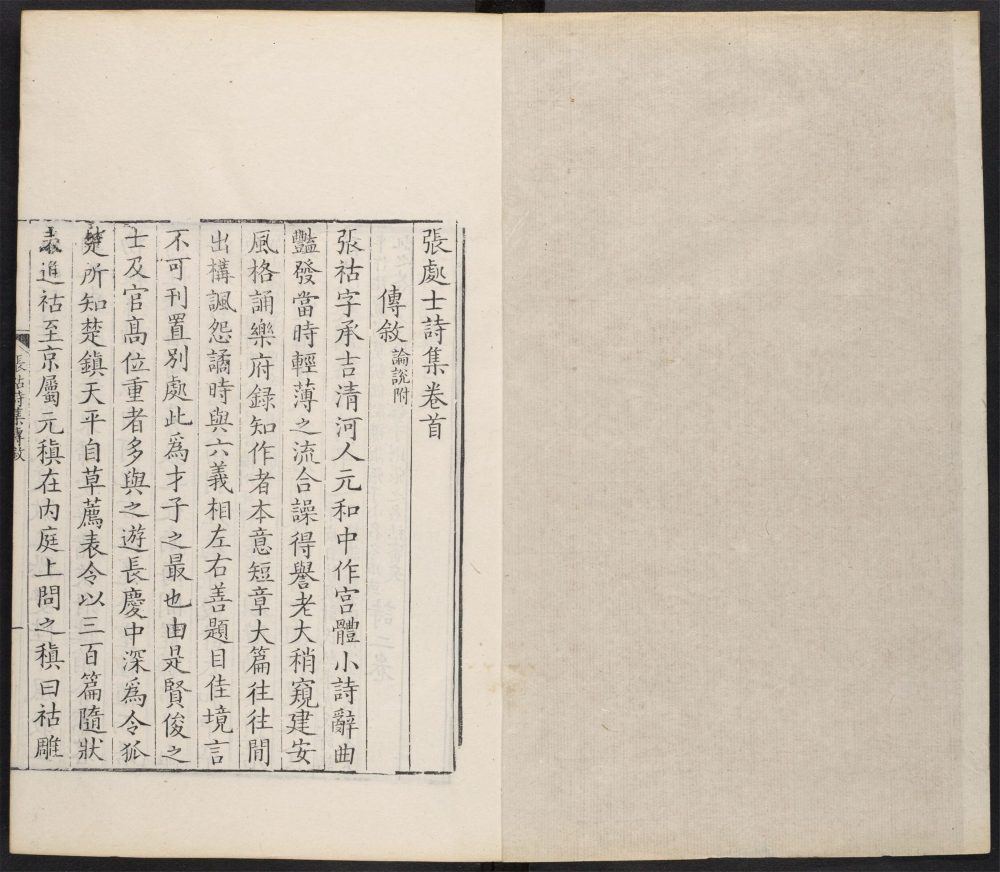 張處士詩集卷首
傳敘論說附
張祜字承吉清河人元和中作宮體小詩辭曲
豔發當時輕薄之流合譟得譽老大稍窺建安
風格誦樂府録知作者本意短章大篇往往間
出構諷怨譎時與六義相左右善題目佳境言
不可刊置別處此為才子之最也由是賢俊之
士及官髙位重者多與之遊長慶中深為令狐
楚所知楚鎮天平自草薦表令以三百篇隨狀
表進祜至京屬元稹在內庭上問之稹曰祜雕
張祜詩集傳敘
一